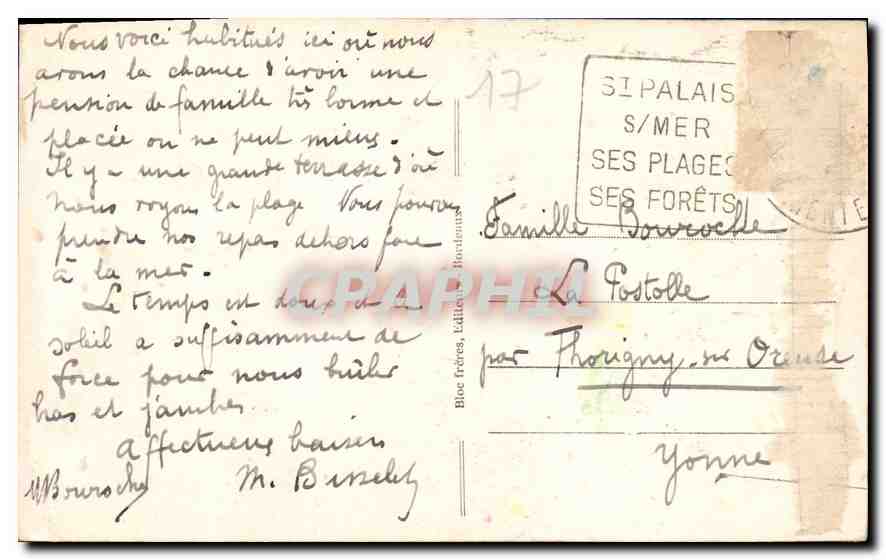 Nous voici habitués ici où nous
avons la chance d'avoir une
pension de famille très bonne et
placée on ne peut mieux.
Il y a une grande terrasse d'où
nous voyons la plage Nous pouvons
prendre nos repas dehors face
à la mer.
Le temps est doux et le
soleil a suffisamment de
force pour nous brûler
bras et jambes
Affectueux baisers
MBouroche
M.
Bloc frères, Editeurs Bordeaux
17
ST PALAIS
S/MER
SES PLAGES
SES FORÊTS
Famille Bouroche
La Postolle
par Thorigny-sur Oreuse
Yonne
CPAPHIL